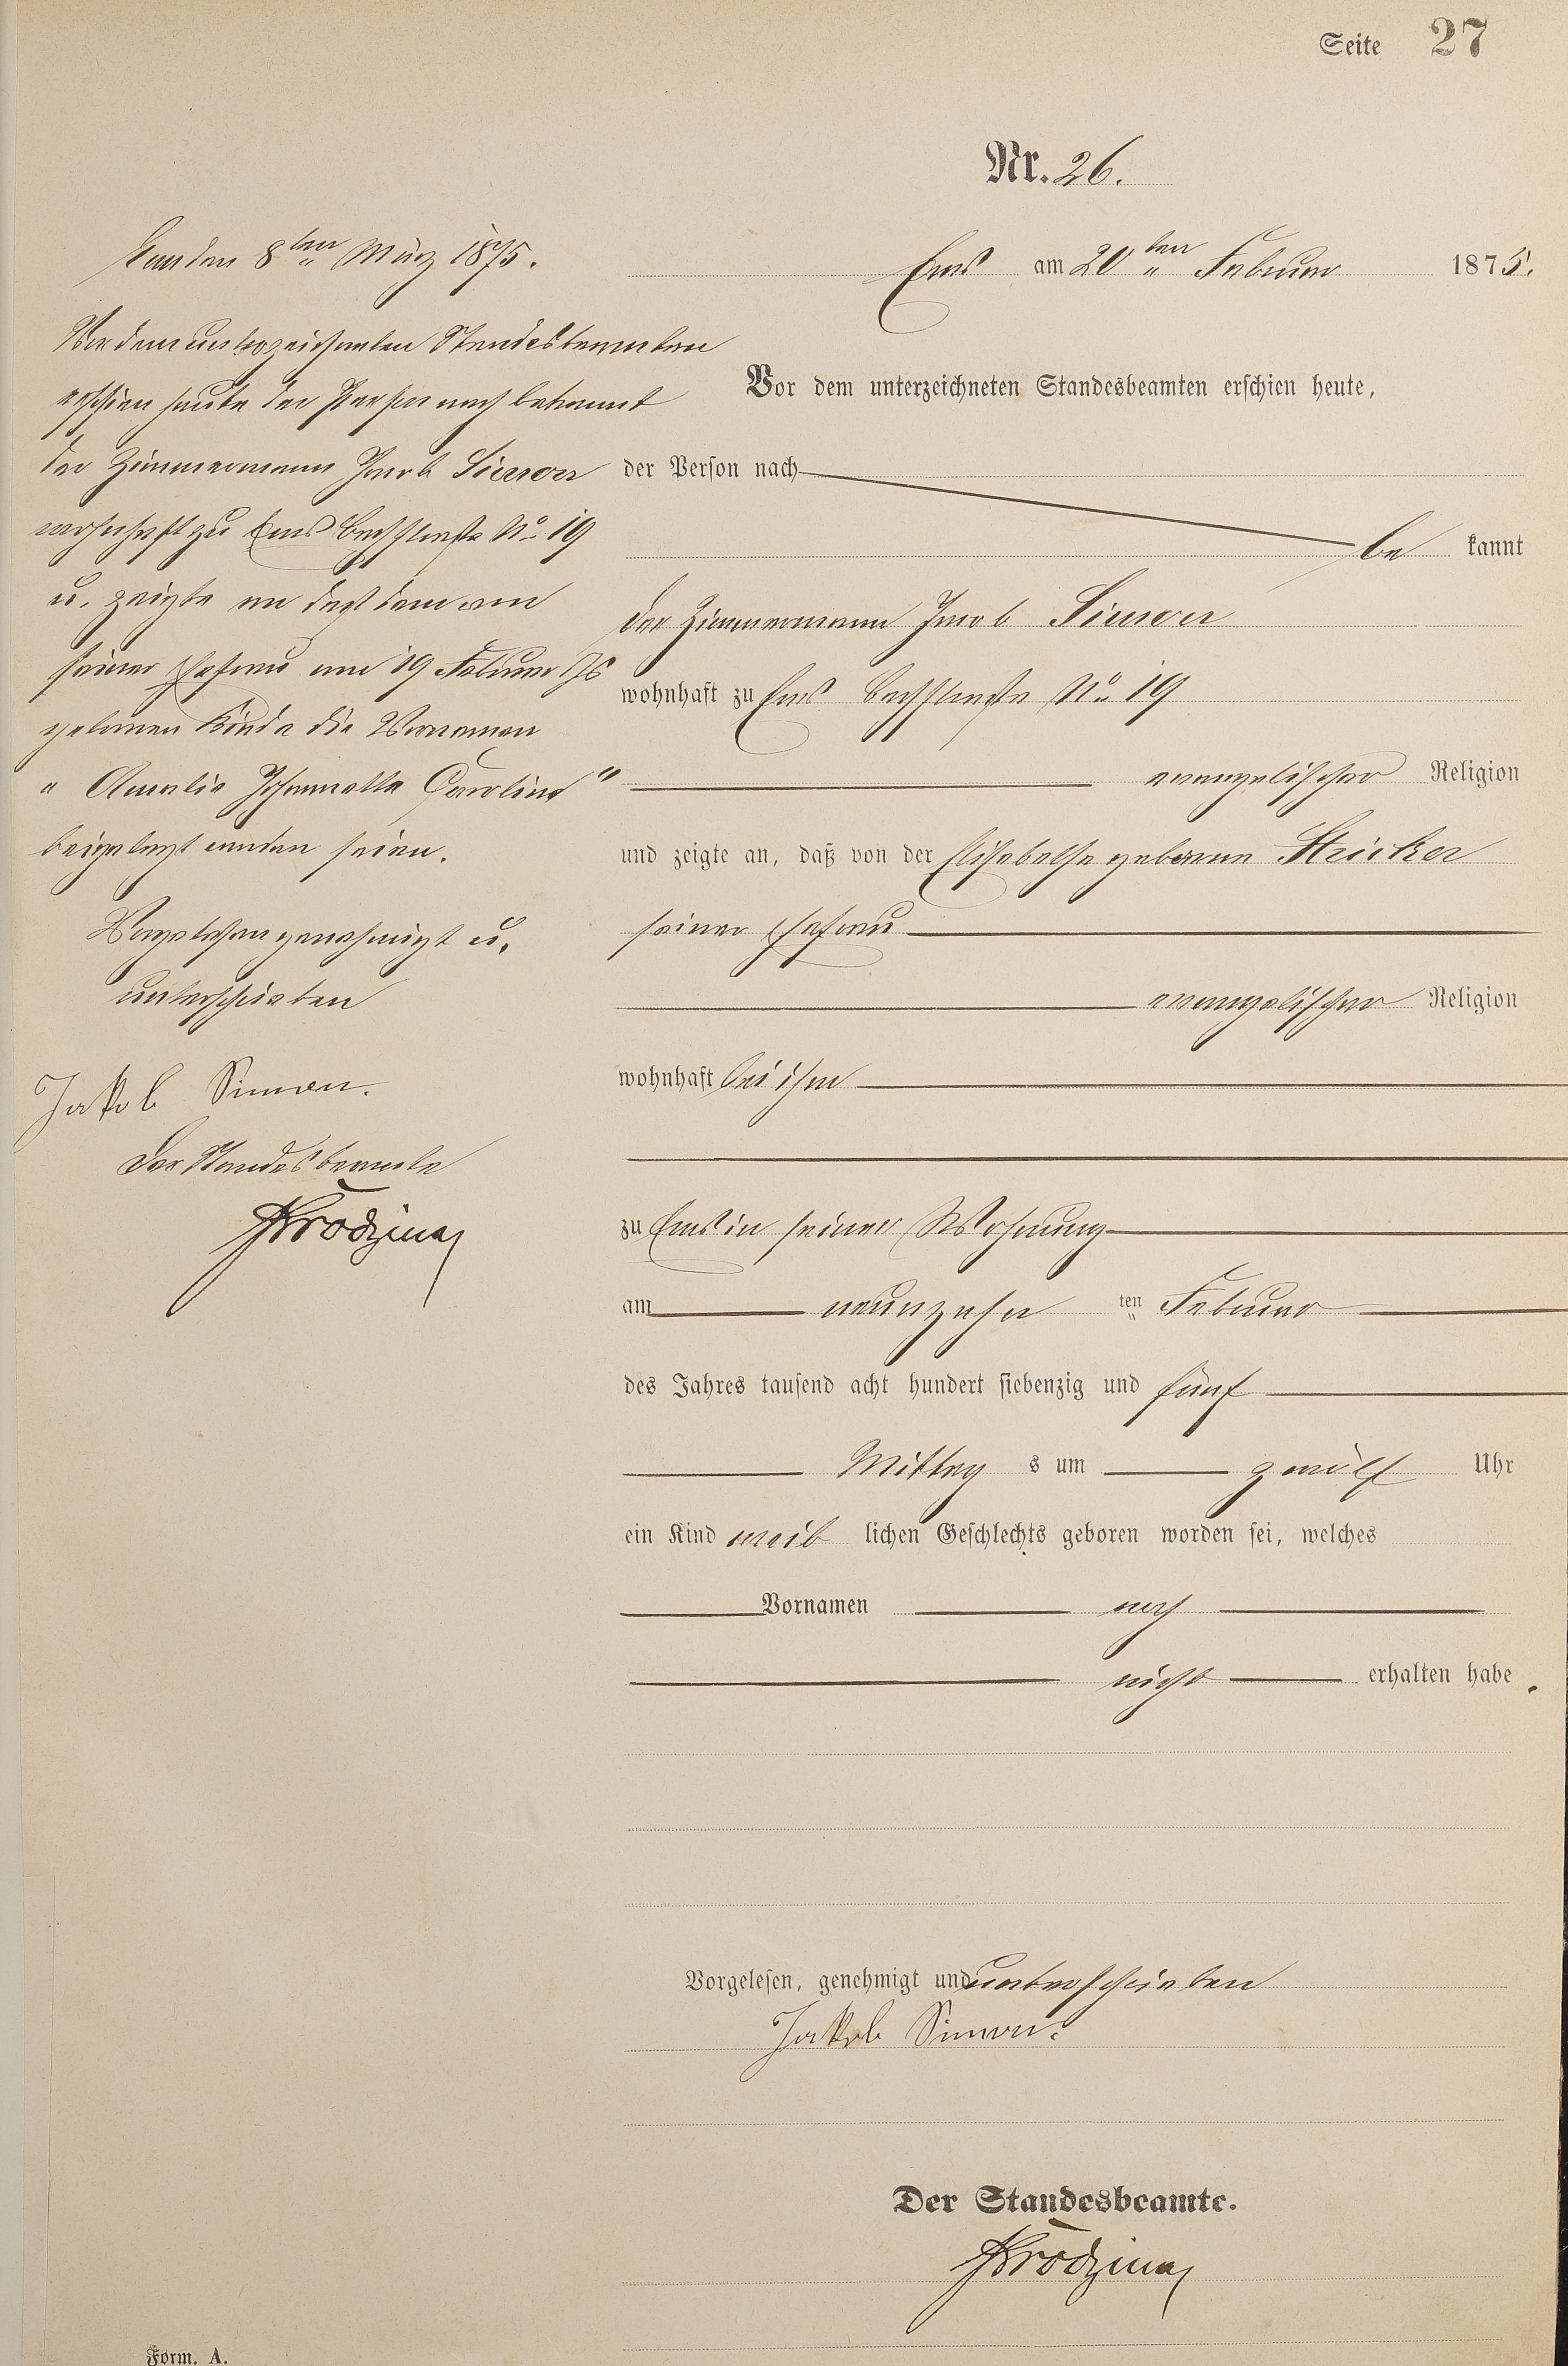 Seite 27
Nr. 26.
Ems den 8ten März 1875.
Vor dem unterzeichneten Standesbeamten
erschien heute der Person nach bekannt
der Zimmermann Jacob Simon
wohnhaft zu Ems Bachstraße No 19
u. zeigte an daß dem von
seiner Ehefrau am 19 Februar
geborenen Kinde die Vornamen
" Amalie Johannette Caroline "
beigelegt worden seien.
Vorgelesen genehmigt u.
unterschrieben
Jakob Simon.
Der Standesbeamte
Ems am 20ten Februar 1875.
Vor dem unterzeichneten Standesbeamten erschien heute,
der Person nach
be kannt
der Zimmermann Jacob Simon
wohnhaft zu Ems Bachstraße No 19
evangelischer Religion
und zeigte an, daß von der Elisabethe geborene Stricker
seiner Ehefrau
evangelischer Religion
wohnhaft bei ihm
zu Ems in seiner Wohnung
am neunzehn ten Februar
des Jahres tausend acht hundert siebenzig und fünf
Mittag s um zwölf Uhr
ein Kind weib lichen Geschlechts geboren worden sei, welches
Vornamen noch
nicht erhalten habe.
Vorgelesen, genehmigt und unterschrieben
Jakob Simon.
Der Standesbeamte.
Form. A.